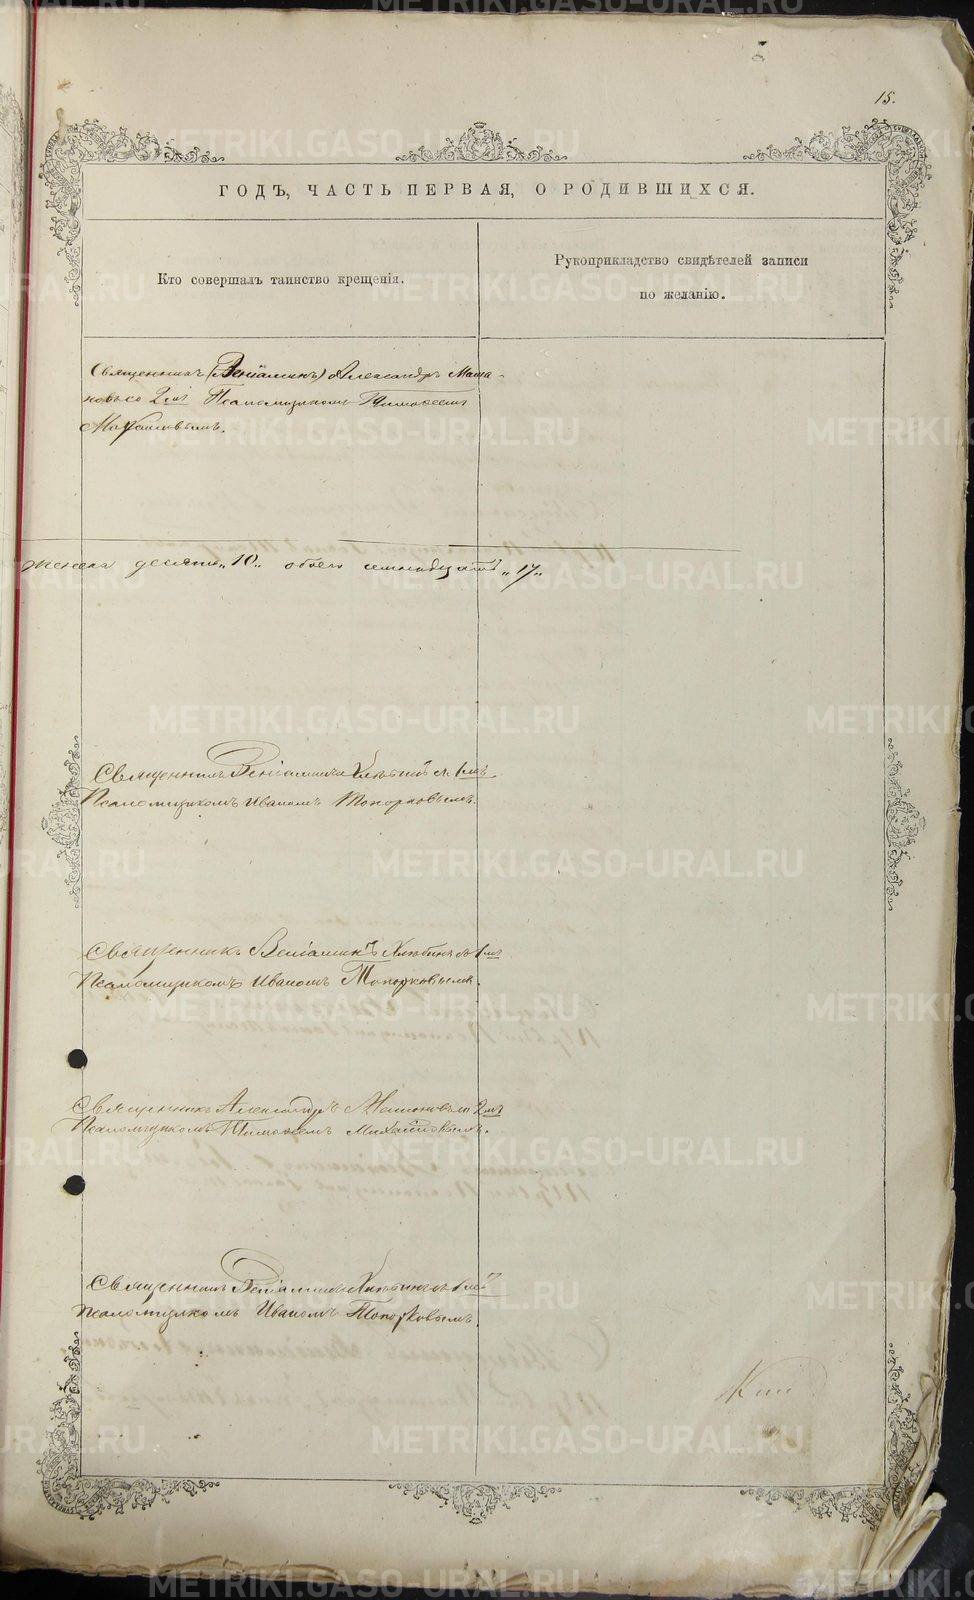 15.
ГОДЪ, ЧАСТЬ ПЕРВАЯ, О РОДИВШИХСЯ.
Кто совершалъ таинство крещенія.
Рукоприкладство свидѣтелей записи
по желанію.
Священникъ (Веніаминъ) Александръ
2мъ Псаломщикомъ Тимофеемъ
женска десять „10„ обоего семнадцать „17„
Священникъ Веніаминъ Хлѣбинъ съ 1мъ
Псаломщикомъ Иваномъ Топорковымъ.
Священникъ Веніаминъ Хлѣбинъ съ 1мъ
Псаломщикомъ Иваномъ Топорковымъ.
Священникъ Александръ 2мъ
Псаломщикомъ Тимофеемъ Михайловымъ.
Священникъ Веніаминъ Хлѣбинъ съ 1мъ
Псаломщикомъ Иваномъ Топорковымъ.
METRIKI.GASO-URAL.RU